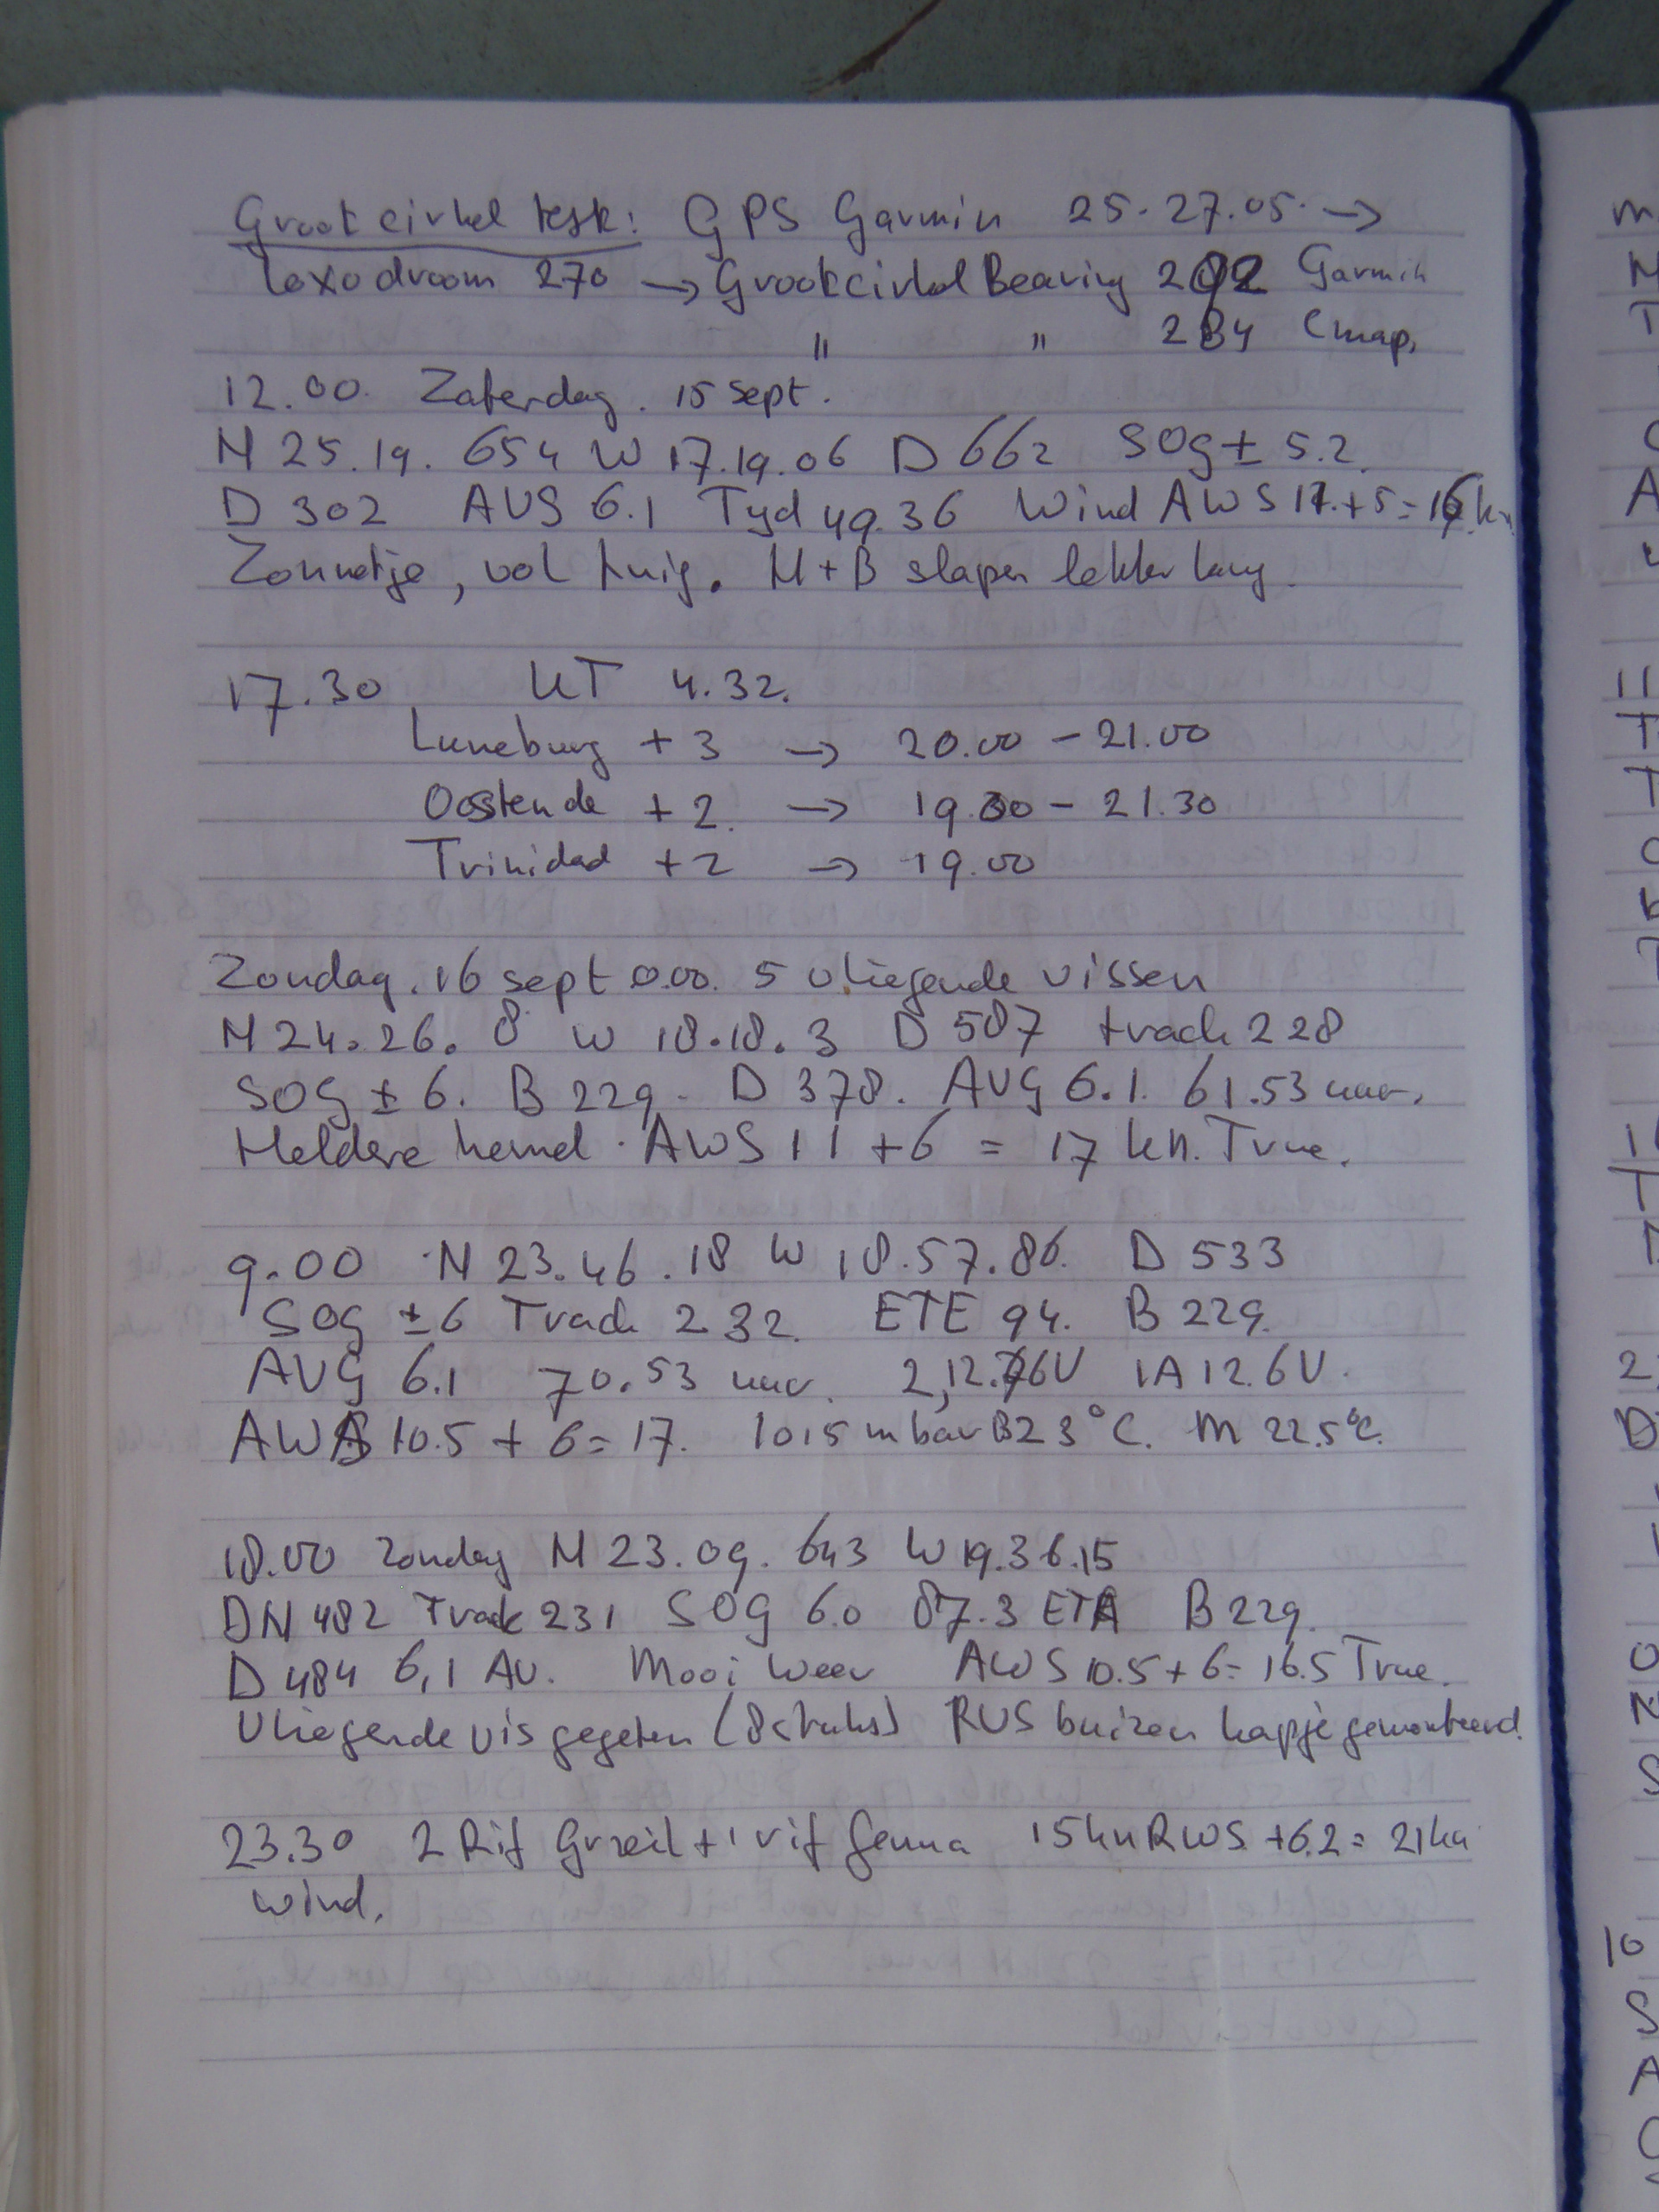 Grootcirkel test: GPS Garmin 25.27.05. →
Loxodroom 270 → Grootcirkel Bearing 292 Garmin
" " 284 Cmap.
12.00. Zaterdag. 15 sept.
N 25.19. 654 W 17.19.06 D 662 SOG ± 5.2.
D 302 AVG 6.1 Tyd 49.36 Wind AWS 11.+5=16 kn
Zonnetje, vol tuig. M+B slapen lekker lang.
17.30 UT 4.32.
Luneburg +3 → 20.00 - 21.00
Oostende +2. → 19.30 - 21.30
Trinidad +2 → 19.00
Zondag. 16 sept 0.00. 5 vliegende vissen
N 24.26. 8 W 18.18.3 D 587 track 228
SOG ± 6. B 229. D 378. AVG 6.1. 61.53 uur.
Heldere hemel. AWS 11 + 6 = 17 kn. True.
9.00 N 23.46.18 W 18.57.86. D 533
SOG ±6 Track 232. ETE 94. B 229.
AVG 6.1 70.53 uur. 2,12.76V 1A 12.6V.
AWS 10.5 + 6= 17. 1015 mbar B23°C. M 22.5°C.
18.00 Zondag N 23.09. 643 W 19.36.15
DN 482 Track 231 SOG 6.0 87.3 ETA B 229.
D 484 6,1 AV. Mooi weer AWS 10.5+6= 16.5 True.
Vliegende vis gegeten (8 stuks) RVS buizen kapje gemonteerd.
23.30 2 Rif Grzeil + 1 rif Genua 15kn RWS +6.2= 21kn
wind.